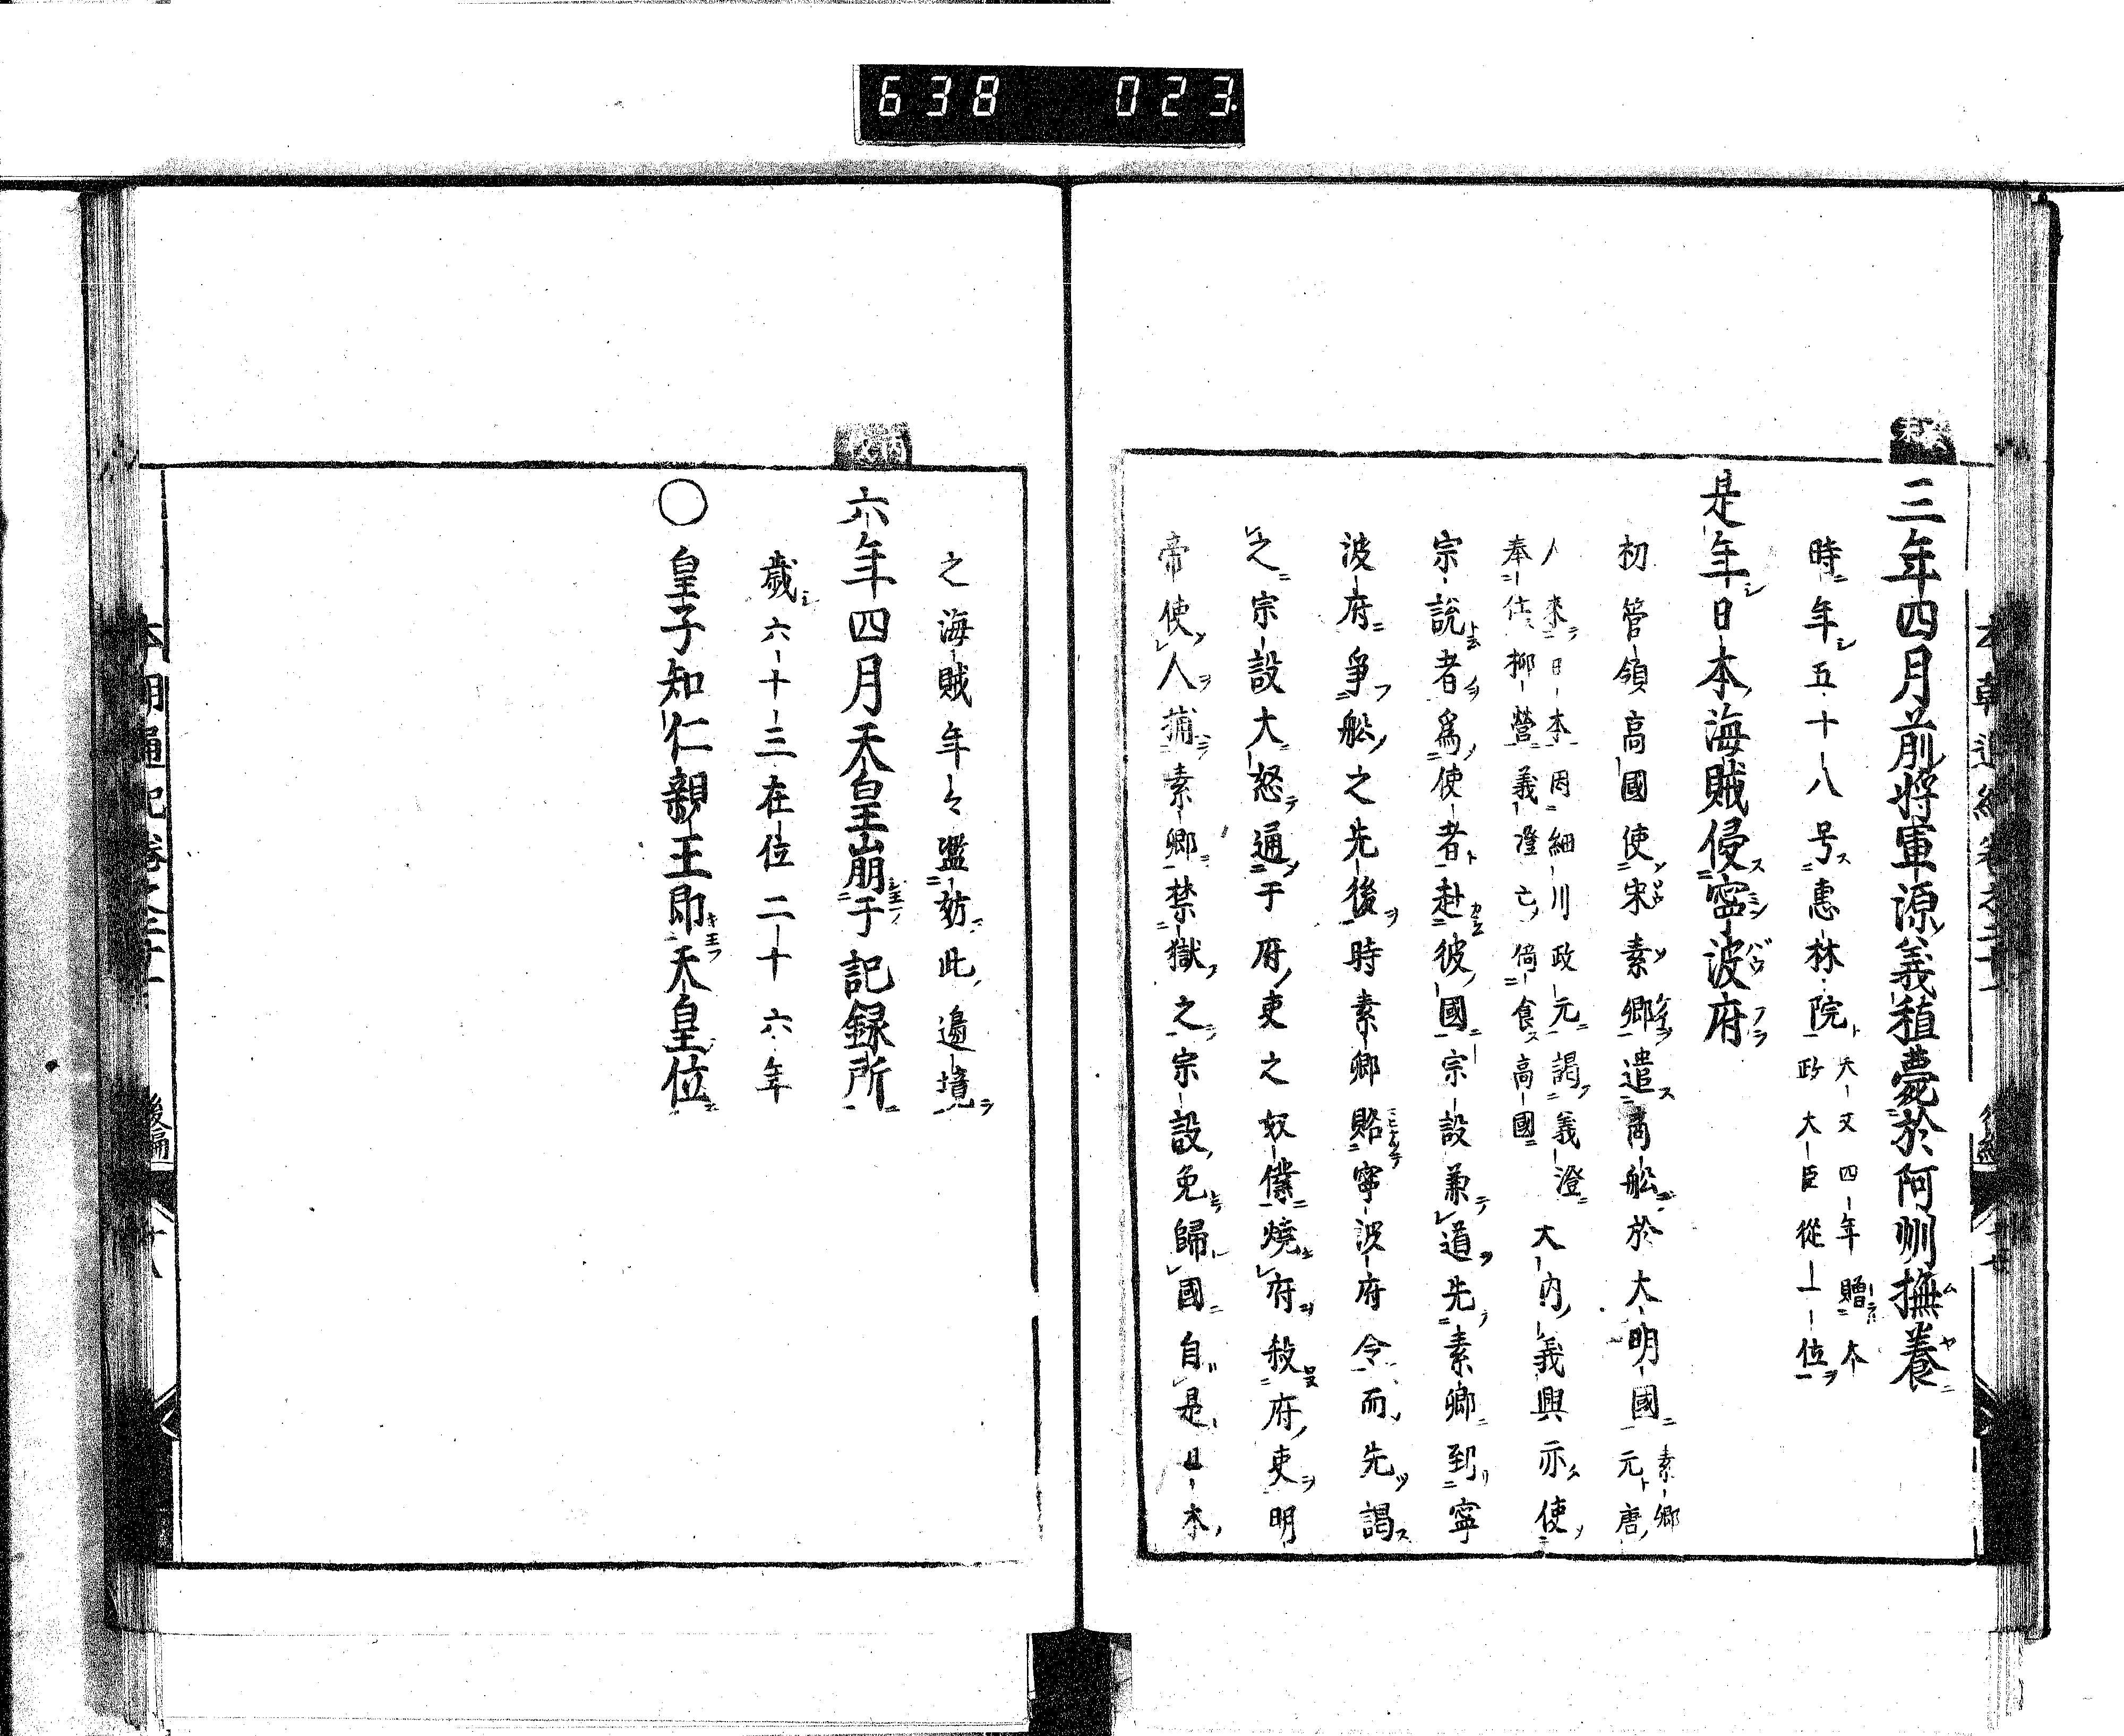 638 023
癸未
三年四月前將軍源義稙薨於阿州撫養
時年五十八号惠林院
天文四年贈太
政大臣從一位
是年日本海賊侵寧波府
初管領高國使宋素卿遣商舩於大明國
素卿
元唐
人来日本因細川政元謁義澄
奉仕柳營義澄亡倚食高國
大内義興亦使
宗說者爲使者赴彼國宗設兼道先素卿到寧
波府爭舩之先後時素卿賂寧波府令而先謁
之宗設大怒通于府吏之奴僕燒府殺府吏明
帝使人捕素卿禁獄之宗設免歸國自是日本
之海賊年々濫妨此邊境
丙戌
六年四月天皇崩于記録所
歳六十三在位二十六年
〇皇子知仁親王即天皇位
本朝通紀卷之二十一 後編